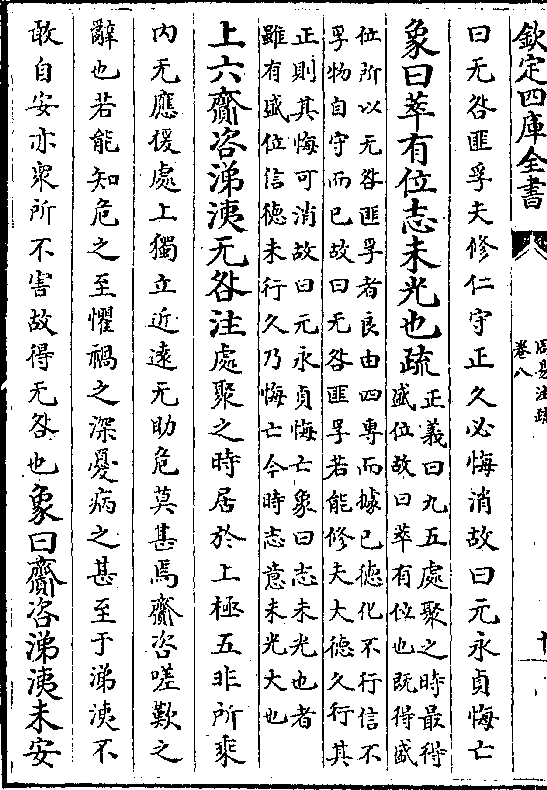 欽定四庫全書
周易注疏
卷八
曰无咎匪孚夫修仁守正久必悔消故曰元永貞悔亡
象曰萃有位志未光也疏
正義曰九五處聚之時最得
盛位故曰萃有位也既得盛
位所以无咎匪孚者良由四專而據已德化不行信不
孚物自守而已故曰无咎匪孚若能修夫大德久行其
正則其悔可消故曰元永貞悔亡象曰志未光也者
雖有盛位信德未行久乃悔亡今時志意未光大也
上六齎咨涕洟无咎注處聚之時居於上極五非所乘
内无應援處上獨立近遠无助危莫甚焉齎咨嗟歎之
辭也若能知危之至懼禍之深憂病之甚至于涕洟不
敢自安亦衆所不害故得无咎也象曰齎咨涕洟未安